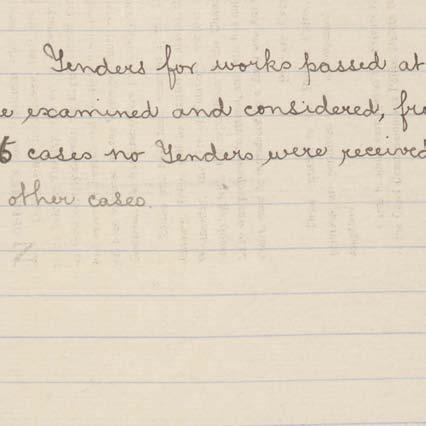 Tenders for works passed at
e examined and considered, fr
5 cases no Tenders were received
other cases.